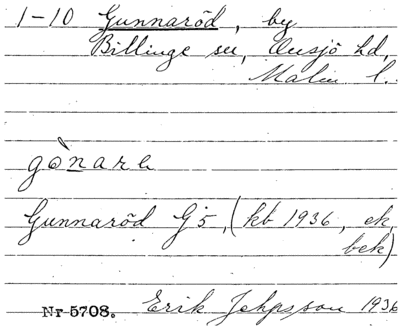 1-10 Gunnaröd, by
Billinge sn, Onsjö hd,
Malm. l.
gònarə
Gunnaröd G5, (kb 1936, ek,
bek)
Nr 5708. Erik Jeppsson 1936